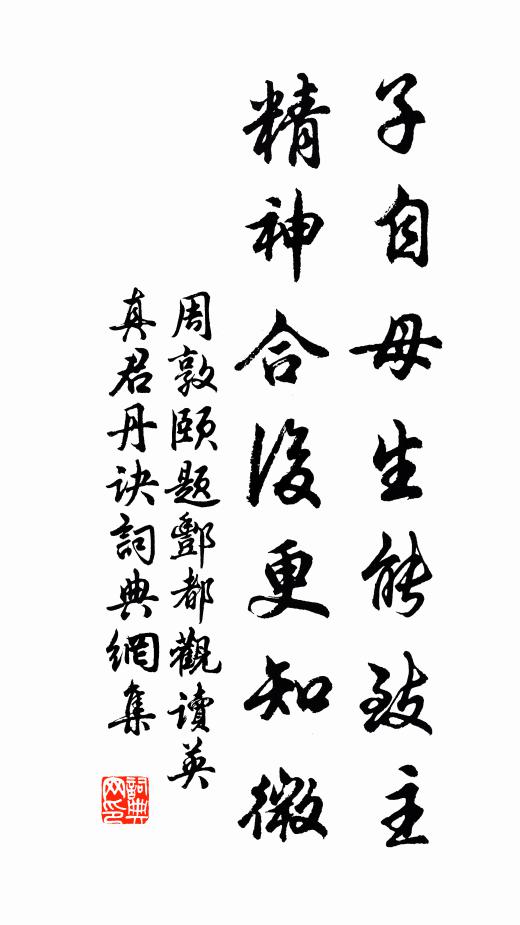 子自母生能致主
精神合後更知微
周敦頤題酆都觀讀英
真君丹訣詞典網集
詞典
网印